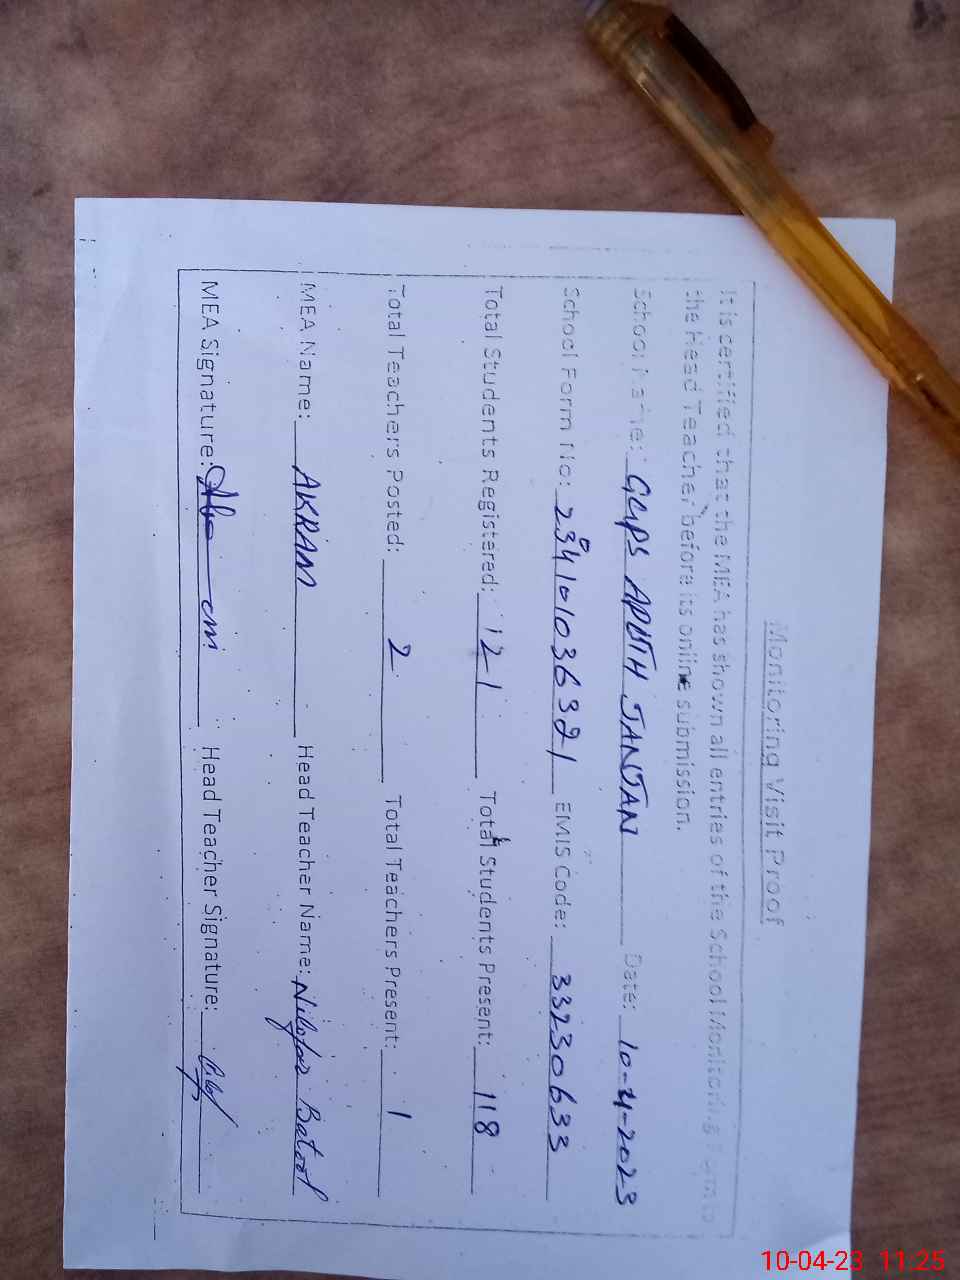 Monitoring Visit Proof
It is certified that the MEA has shown all entries of the School Monitoring Form to
the Head Teacher before its online submission.
School Name: GGPS ADDTH JANJAN Date: 10-4-2023
School Form No: 234101036321 EMIS Code: 33230633
Total Students Registered: 121 Total Students Present: 118
Total Teachers Posted: 2 Total Teachers Present: 1
MEA Name: AKRAM Head Teacher Name: Nilofar Batool
MEA Signature: Head Teacher Signature:
10-04-23 11:25